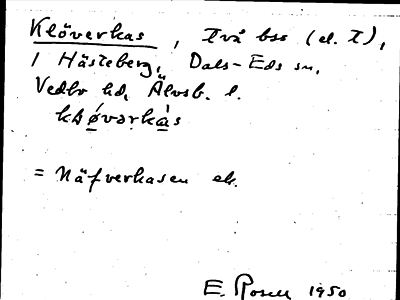 Klöverkas, Två bss (el. I),
i Hästeberg, Dals-Eds sn,
Vedbo hd, Älvsb. l.
kløvərkas
= Näfverkasen ek.
E. Rosell 1950